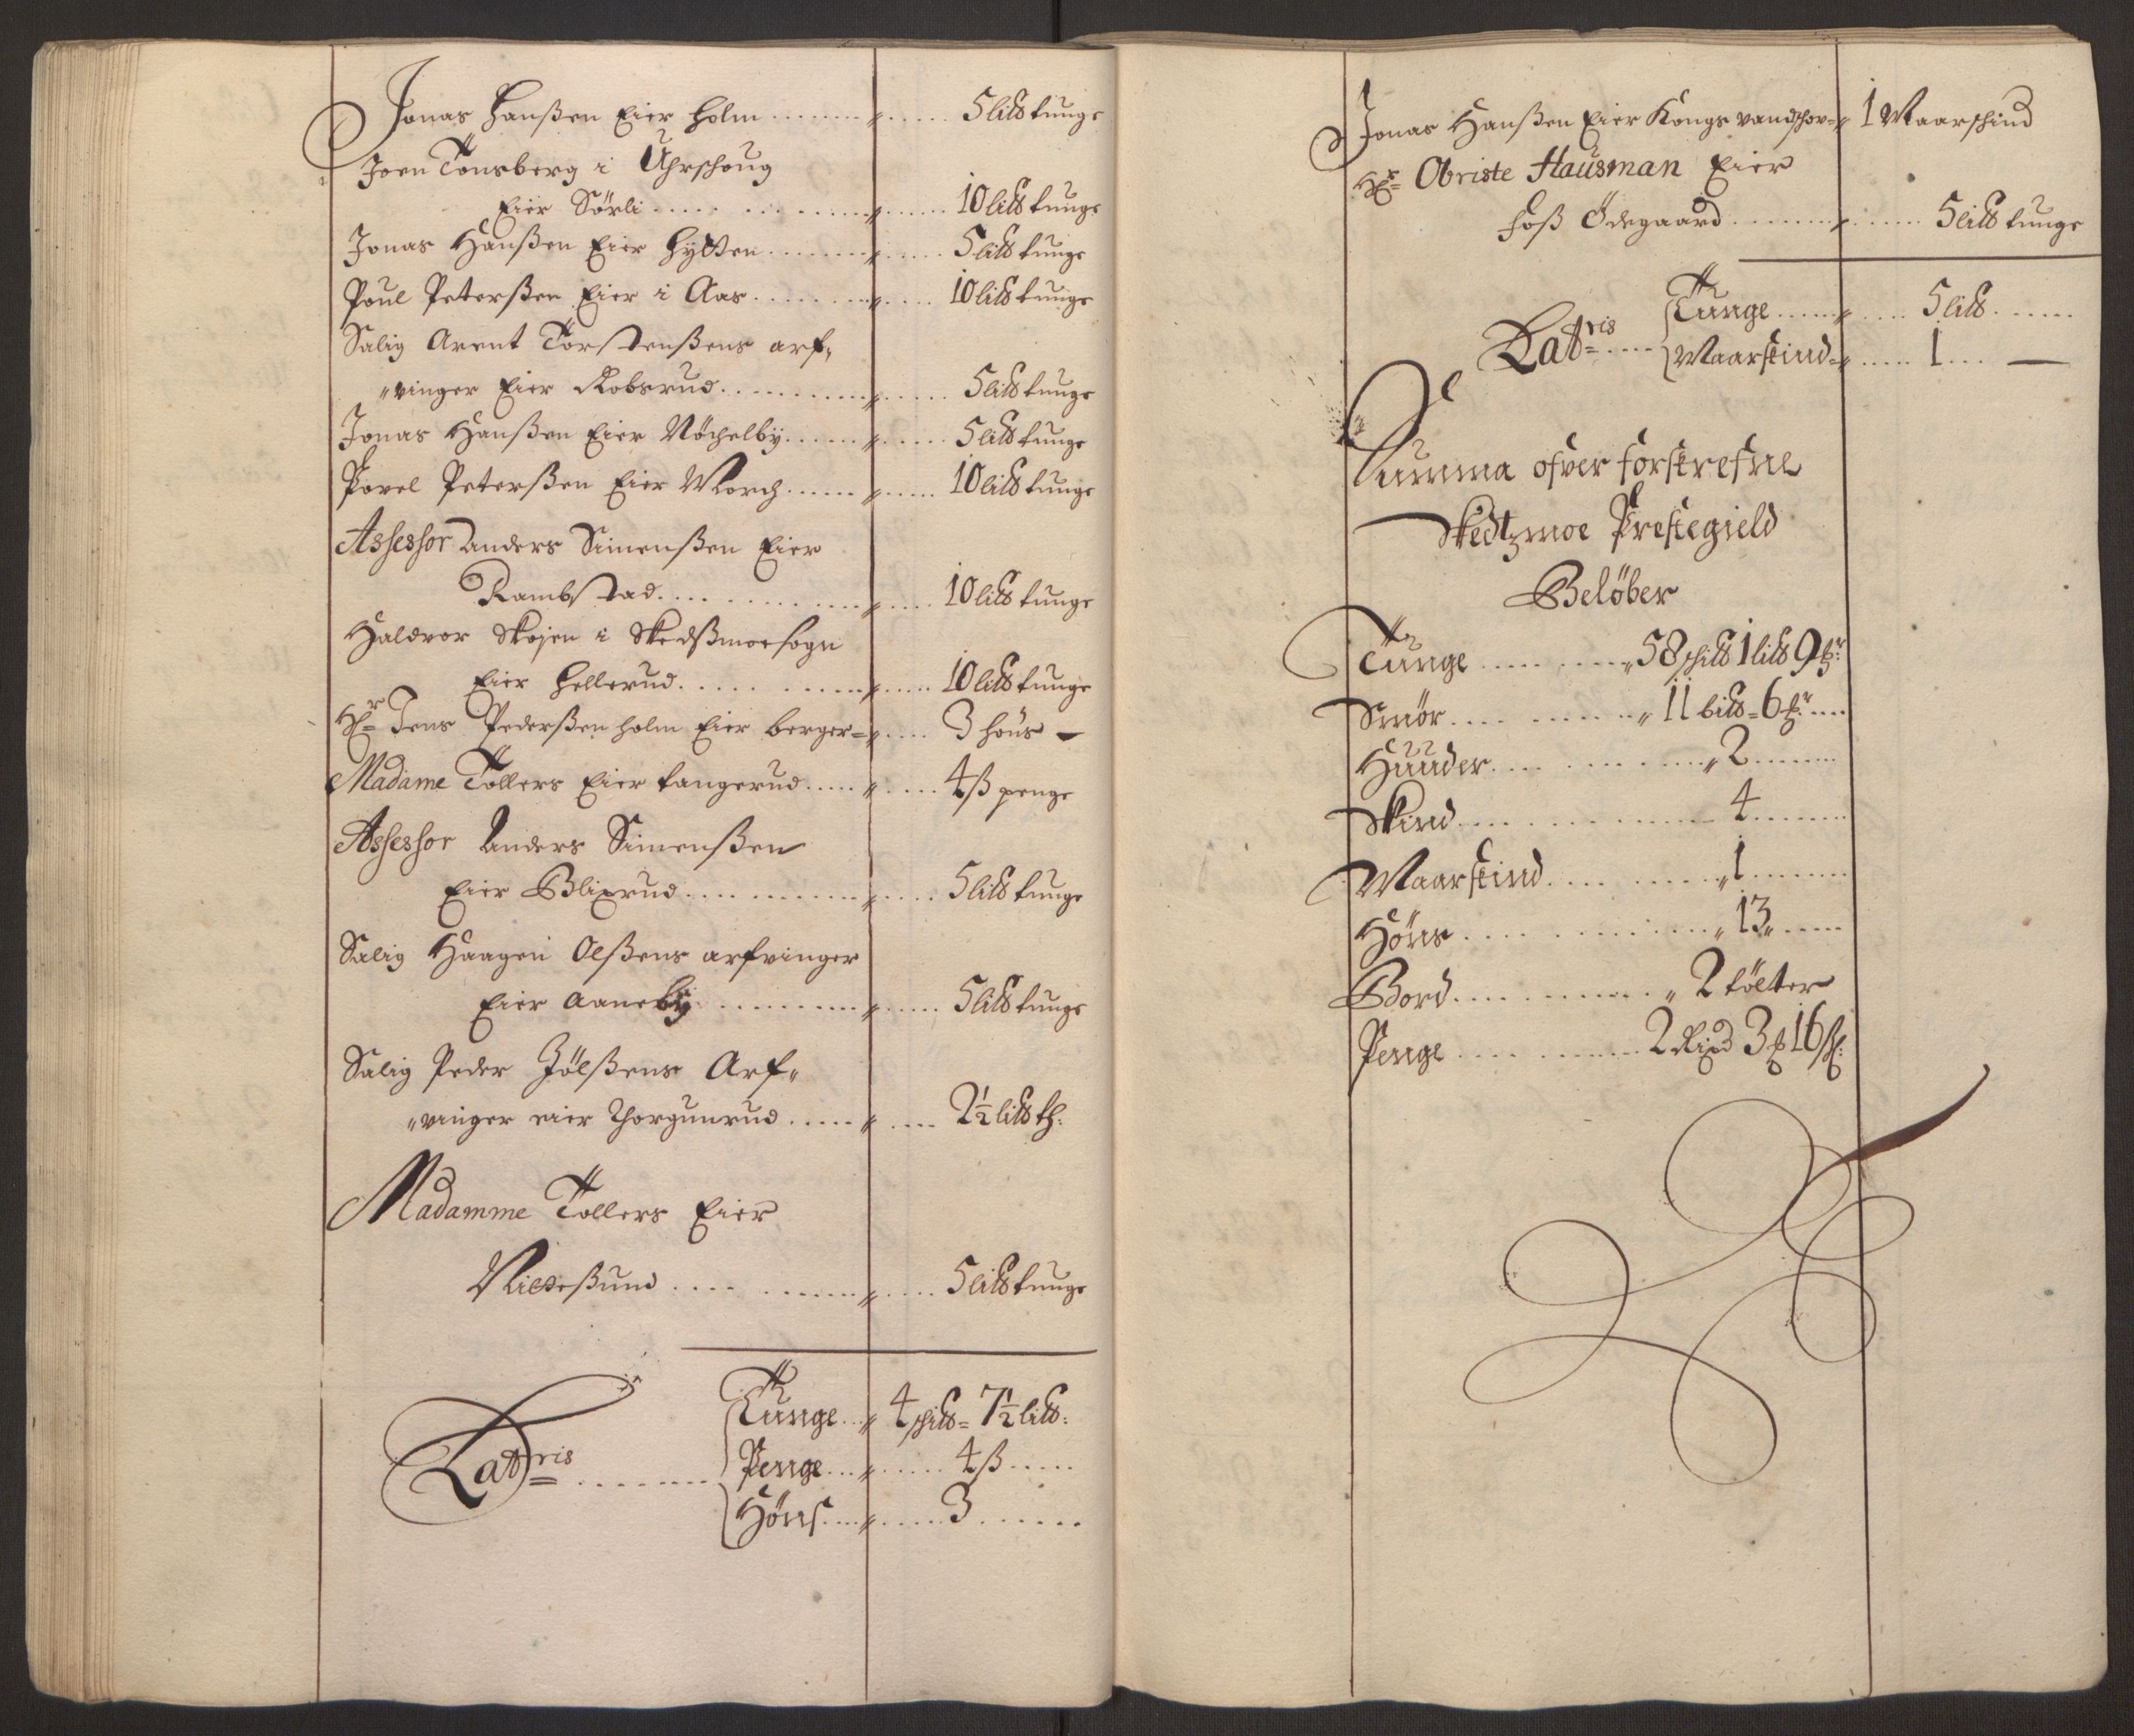 Jonas Hanßen Eier Holm ........ 5 lis℔ tunge
Joen Tonsberg i Uhrschoug
Eier Sørli ........ 10 lis℔ tunge
Jonas Hanßen Eier Hytten ........ 5 lis℔ tunge
Poul Peterßen Eier i Aas ........ 10 lis℔ tunge
Salig Arent Torstenßens arf„
„vinger Eier Robsrud ........ 5 lis℔ tunge
Jonas Hanßen Eier Nöchelby ........ 5 lis℔ tunge
Povel Peterßen Eier Morch ........ 10 lis℔ tunge
Assessor Anders Simenßen Eier
Rambstad ........ 10 lis℔ tunge
Haldvor Skøjen i Skedßmoe sogn
Eier Hellerud ........ 10 lis℔ tunge
Hr= Jens Pederßen Holm Eier berger= .... 3 höns —
Madame Tollers Eier tangerud ........ 4 ß penge
Assessor Anders Simenßen
Eier Blixrud ........ 5 lis℔ tunge
Salig Haagen Olßens arfvinger
Eier Aaneby ........ 5 lis℔ tunge
Salig Peder Jölßens Arf„
„vinger eier Thorgunrud ........ 2½ lis℔ th:
Madamme Tollers Eier
........ 5 lis℔ tunge
Latris= ........ Tunge .... 4 schis℔= 7½ lis℔:
Penge ........ 4 ß ....
Höns ........ 3 ....
Jonas Hanßen Eier Kongs vandschor= 1 Maarschind
Hr= Obriste Hausman Eier
Foß Ödegaard ........ 5 lis℔ tunge
Tunge ........ 5 lis℔ ....
Latris= .... Maarskind= .... 1 .... —
Summa ofver forskrefne
Skedtzmoe Prestegield
Belöber
Tunge ........ 58 schis℔ 1 lis℔ 9 ℔r:
Smör ........ 11 bis℔= 6 ℔r ....
Huuder ........ 2 ....
Skind ........ 4 ....
Maarskind ........ 1 ....
Höns ........ 13 ....
Bord ........ 2 tölter
Penge ........ 2 Rixd 3 ß 16 s: